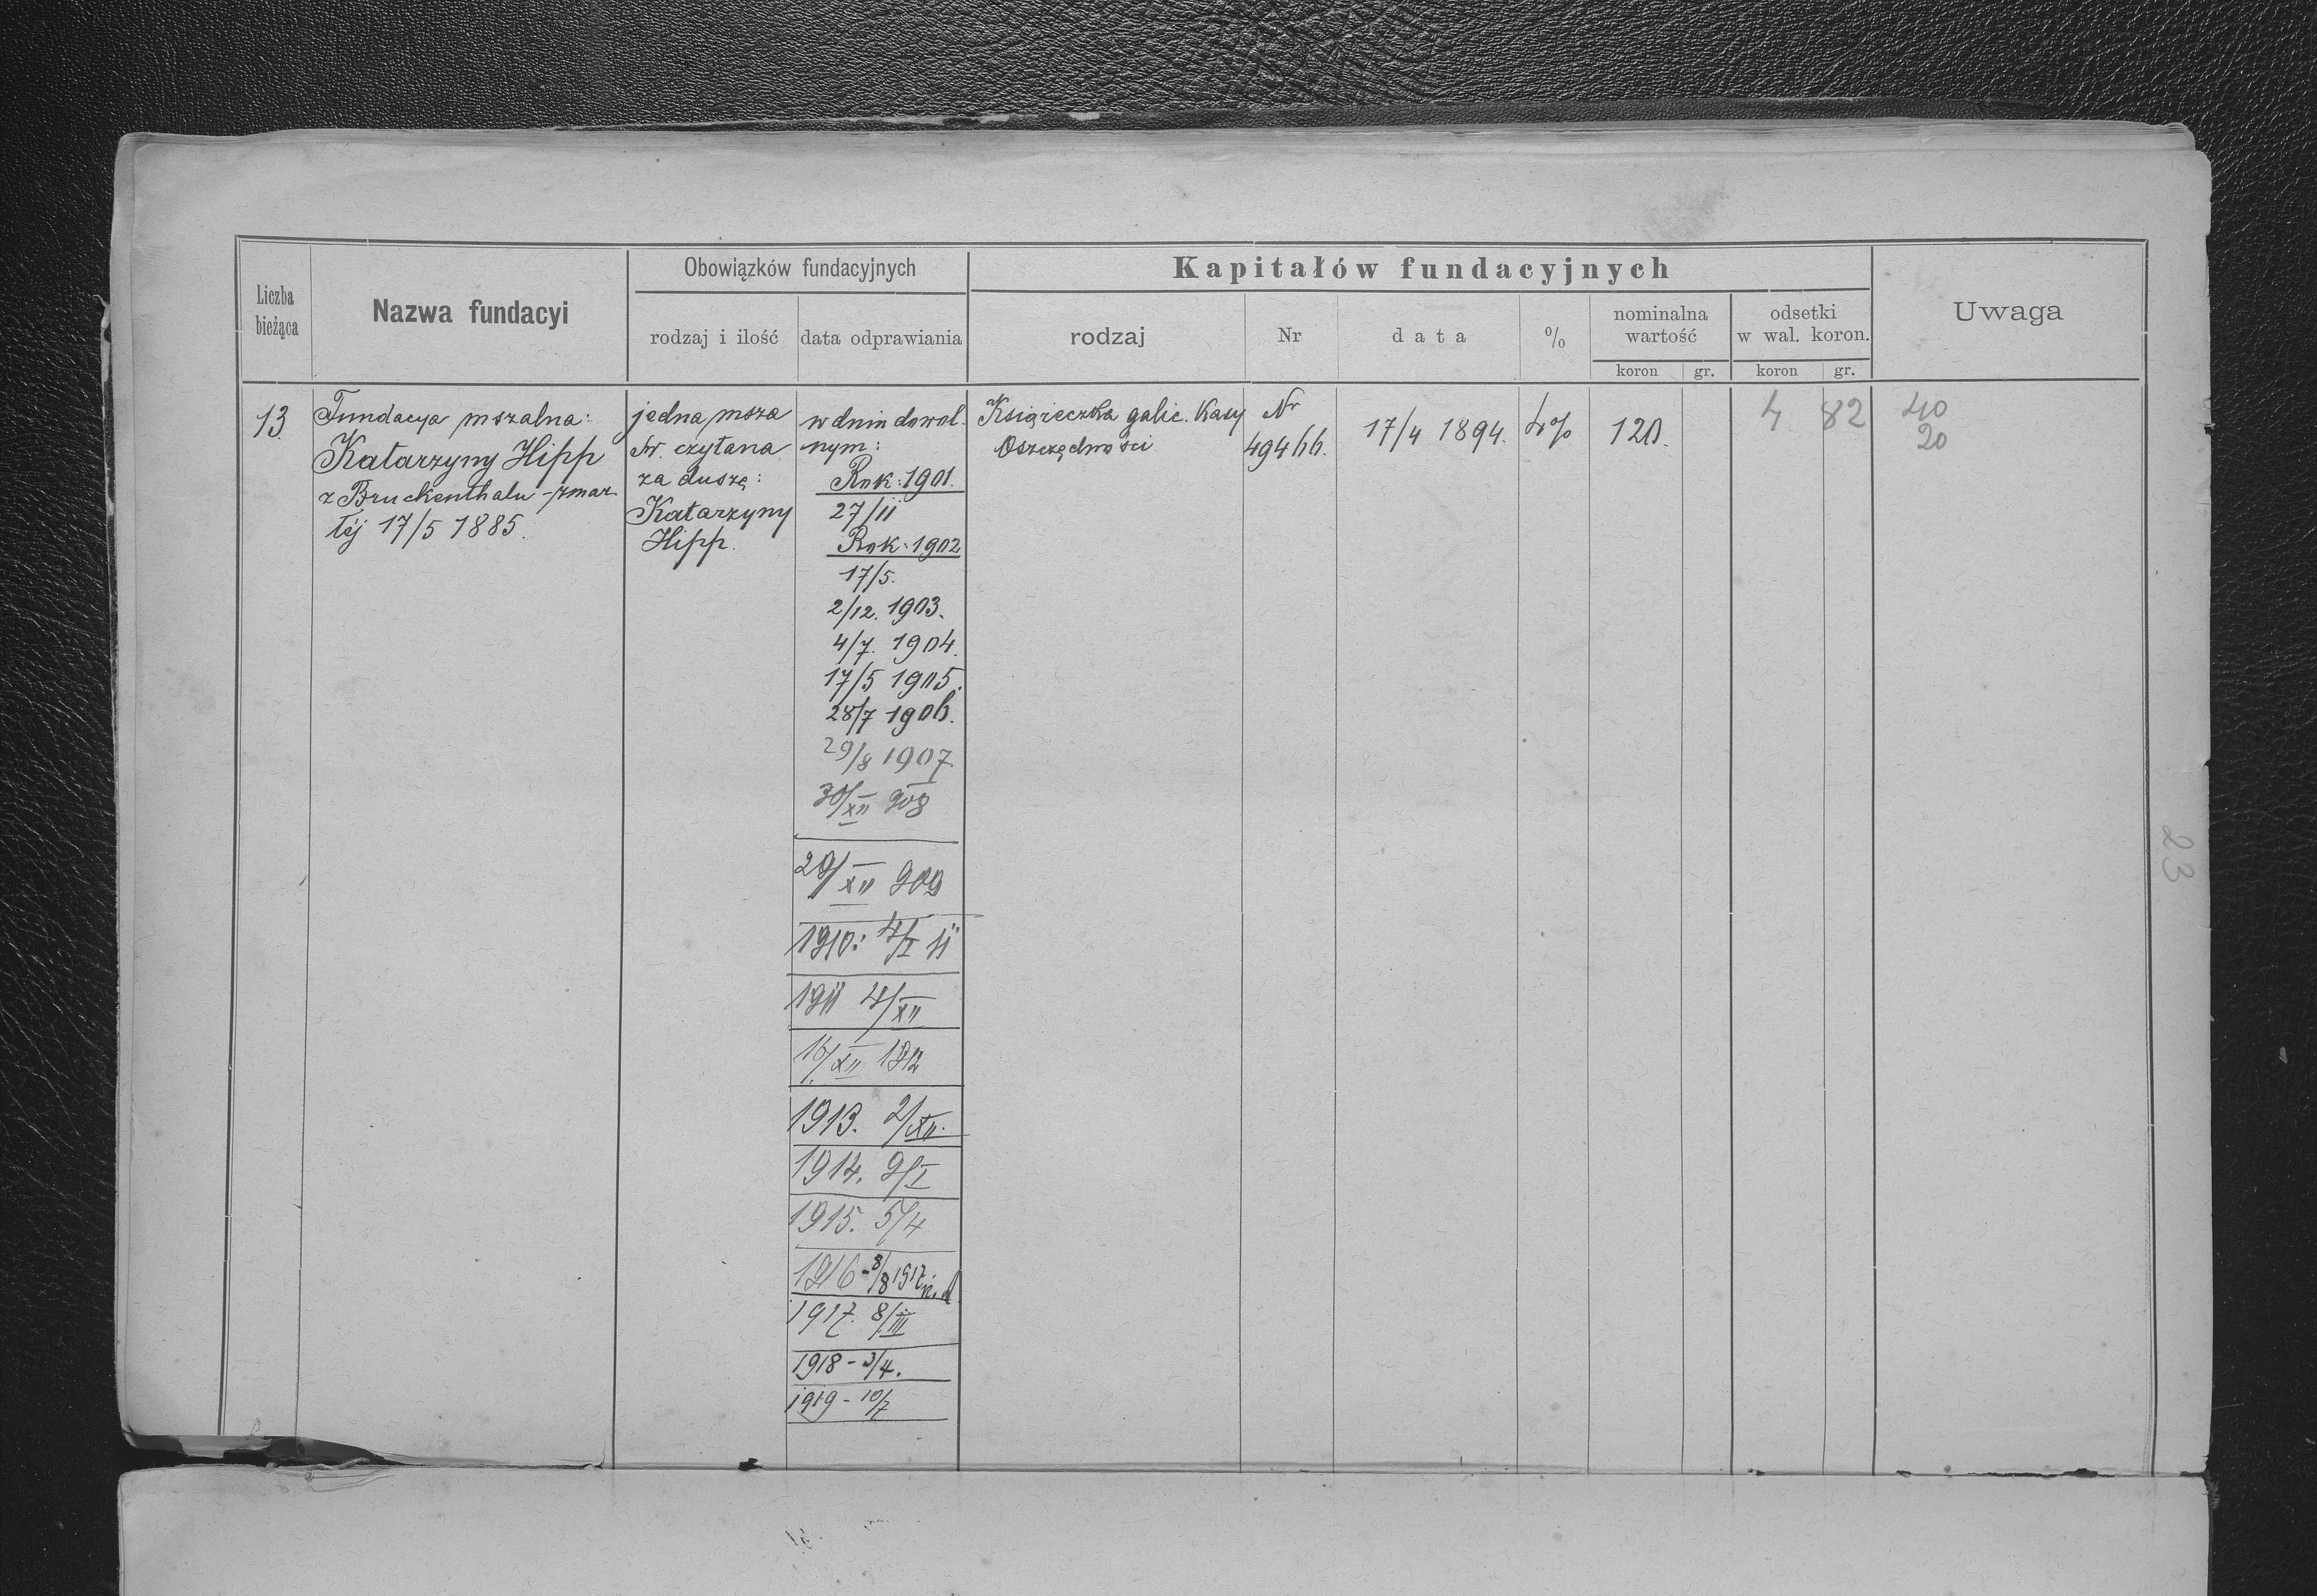 Liczba
bieżąca
Nazwa fundacyi
Obowiązków fundacyjnych
rodzaj i ilość
data odprawiania
Kapitałów fundacyjnych
rodzaj
Nr
data
%
nominalna
wartość
koron gr.
odsetki
w wal. koron.
koron gr.
Uwaga
13.
Fundacya mszalna:
Katarzyny Hipp
z Bruckenthalu - zmar
łéj 17/5 1885.
jedna msza
św. czytana
za duszę:
Katarzyny
Hipp.
w dniu dowol-
nym:
Rok: 1901.
27/11
Rok: 1902
17/5.
2/12. 1903.
4/7. 1904.
17/5 1905.
28/7 1906.
29/8 1907.
30/XII 908
29/XII 909
1910: 4/I 11
1911 4/XII
16/XII 1912
1913. 2/XII.
1914. 9/I
1915. 5/4
1916 - 8/8 1917
1917. 8/III
1918 - 3/4.
1919 - 10/7
Książeczka galic. Kasy
Oszczędności
Nr
49466.
17/4 1894.
4%
120.
4 82
40
20
23